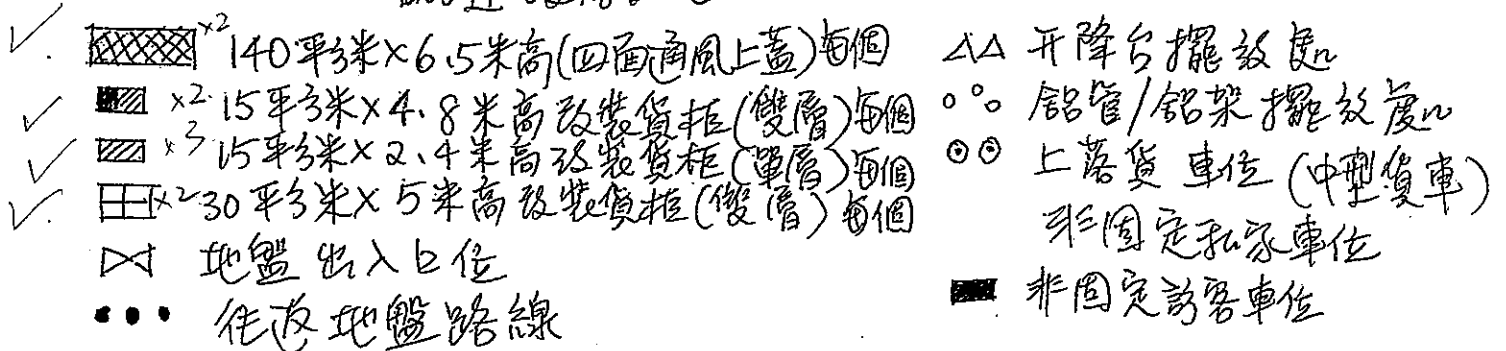 x2 140平方米×6.5米高(四面通風上蓋)每個
x2 15平方米×4.8米高改裝貨柜(雙層)每個
x3 15平方米×2.4米高改裝貨柜(單層)每個
x2 30平方米×5米高改裝貨柜(雙層)每個
地盤出入口位
往返地盤路線
升降台擺放處
鋁管/鋁架擺放處
上落貨車位(中型貨車)
非固定私家車位
非固定訪客車位